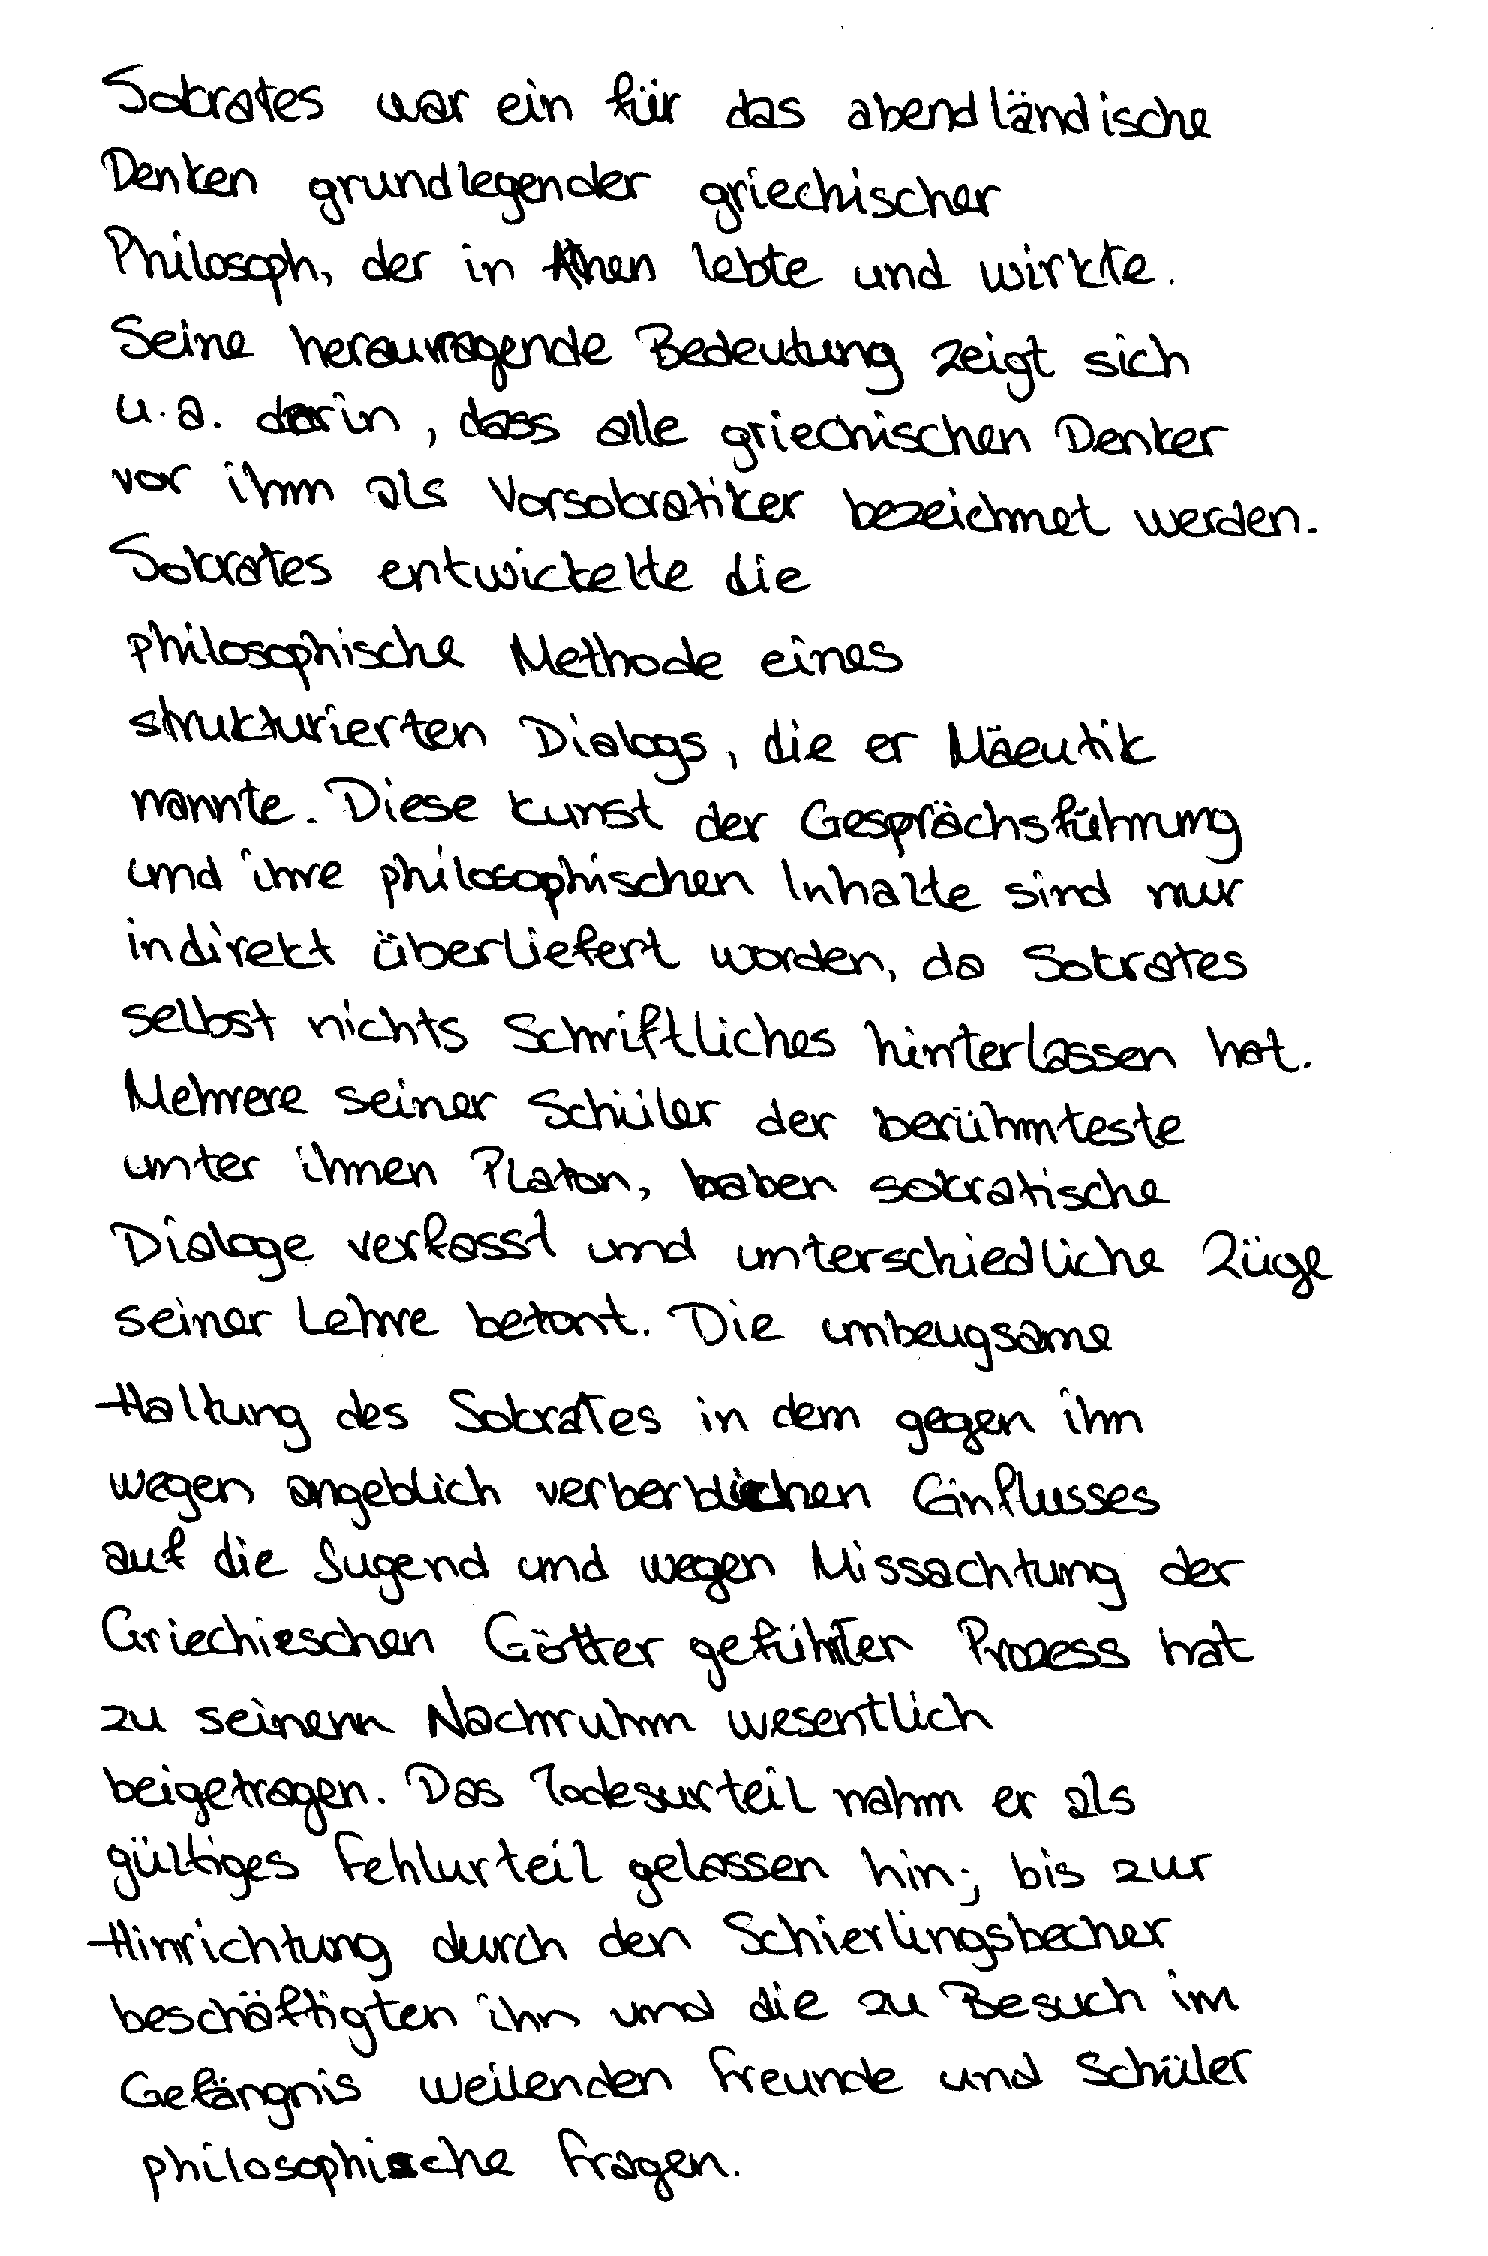 Sokrates war ein für das abendländische
Denken grundlegender griechischer
Philosoph, der in Athen lebte und wirkte.
Seine herausragende Bedeutung zeigt sich
u.a. darin, dass alle griechischen Denker
vor ihm als Vorsokratiker bezeichnet werden.
Sokrates entwickelte die
philosophische Methode eines
strukturierten Dialogs, die er Mäeutik
nannte. Diese Kunst der Gesprächsführung
und ihre philosophischen Inhalte sind nur
indirekt überliefert worden, da Sokrates
selbst nichts Schriftliches hinterlassen hat.
Mehrere seiner Schüler der berühmteste
unter ihnen Platon, haben sokratische
Dialoge verfasst und unterschiedliche Züge
seiner Lehre betont. Die umbeugsame
Haltung des Sokrates in dem gegen ihn
wegen angeblich verberblichen Einflusses
auf die Jugend und wegen Missachtung der
Griechieschen Götter geführter Prozess hat
zu seinem Nachruhm wesentlich
beigetragen. Das Todesurteil nahm er als
gültiges Fehlurteil gelassen hin; bis zur
Hinrichtung durch den Schierlingsbecher
beschäftigten ihn und die zu Besuch im
Gefängnis weilenden Freunde und Schüler
philosophische Fragen.